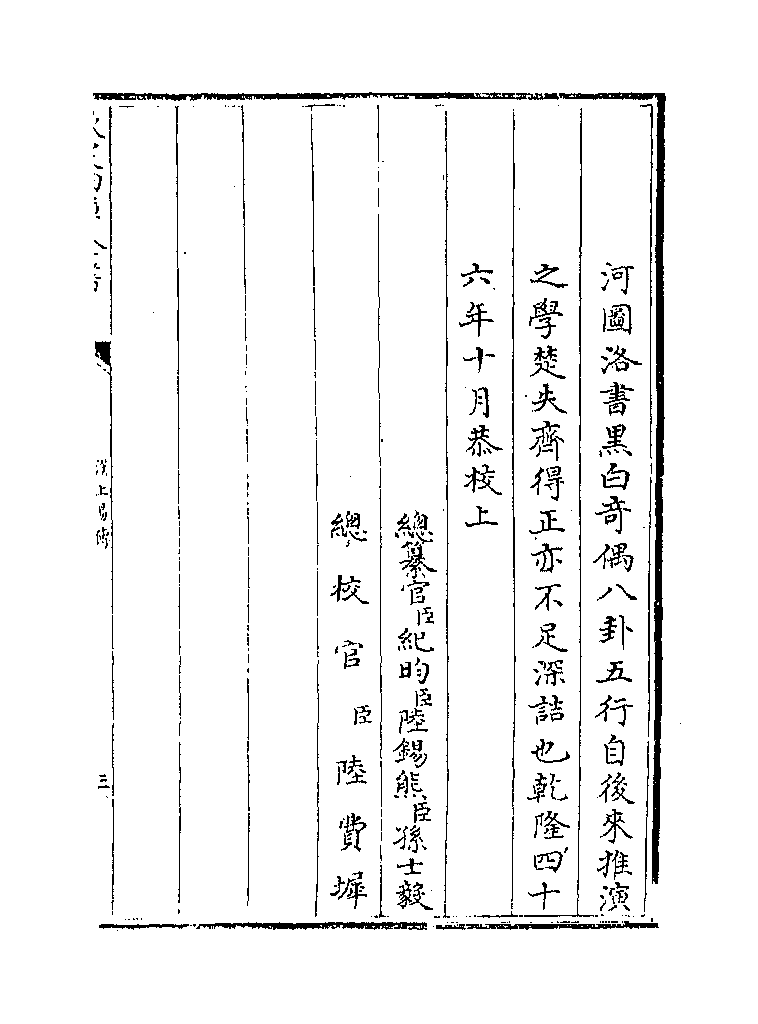 河圖洛書黑白奇偶八卦五行自後來推演
之學楚失齊得正亦不足深詰也乾隆四十
六年十月恭校上
總纂官臣紀昀臣陸錫熊臣孫士毅
總校官臣陸費墀
漢上易傳
三